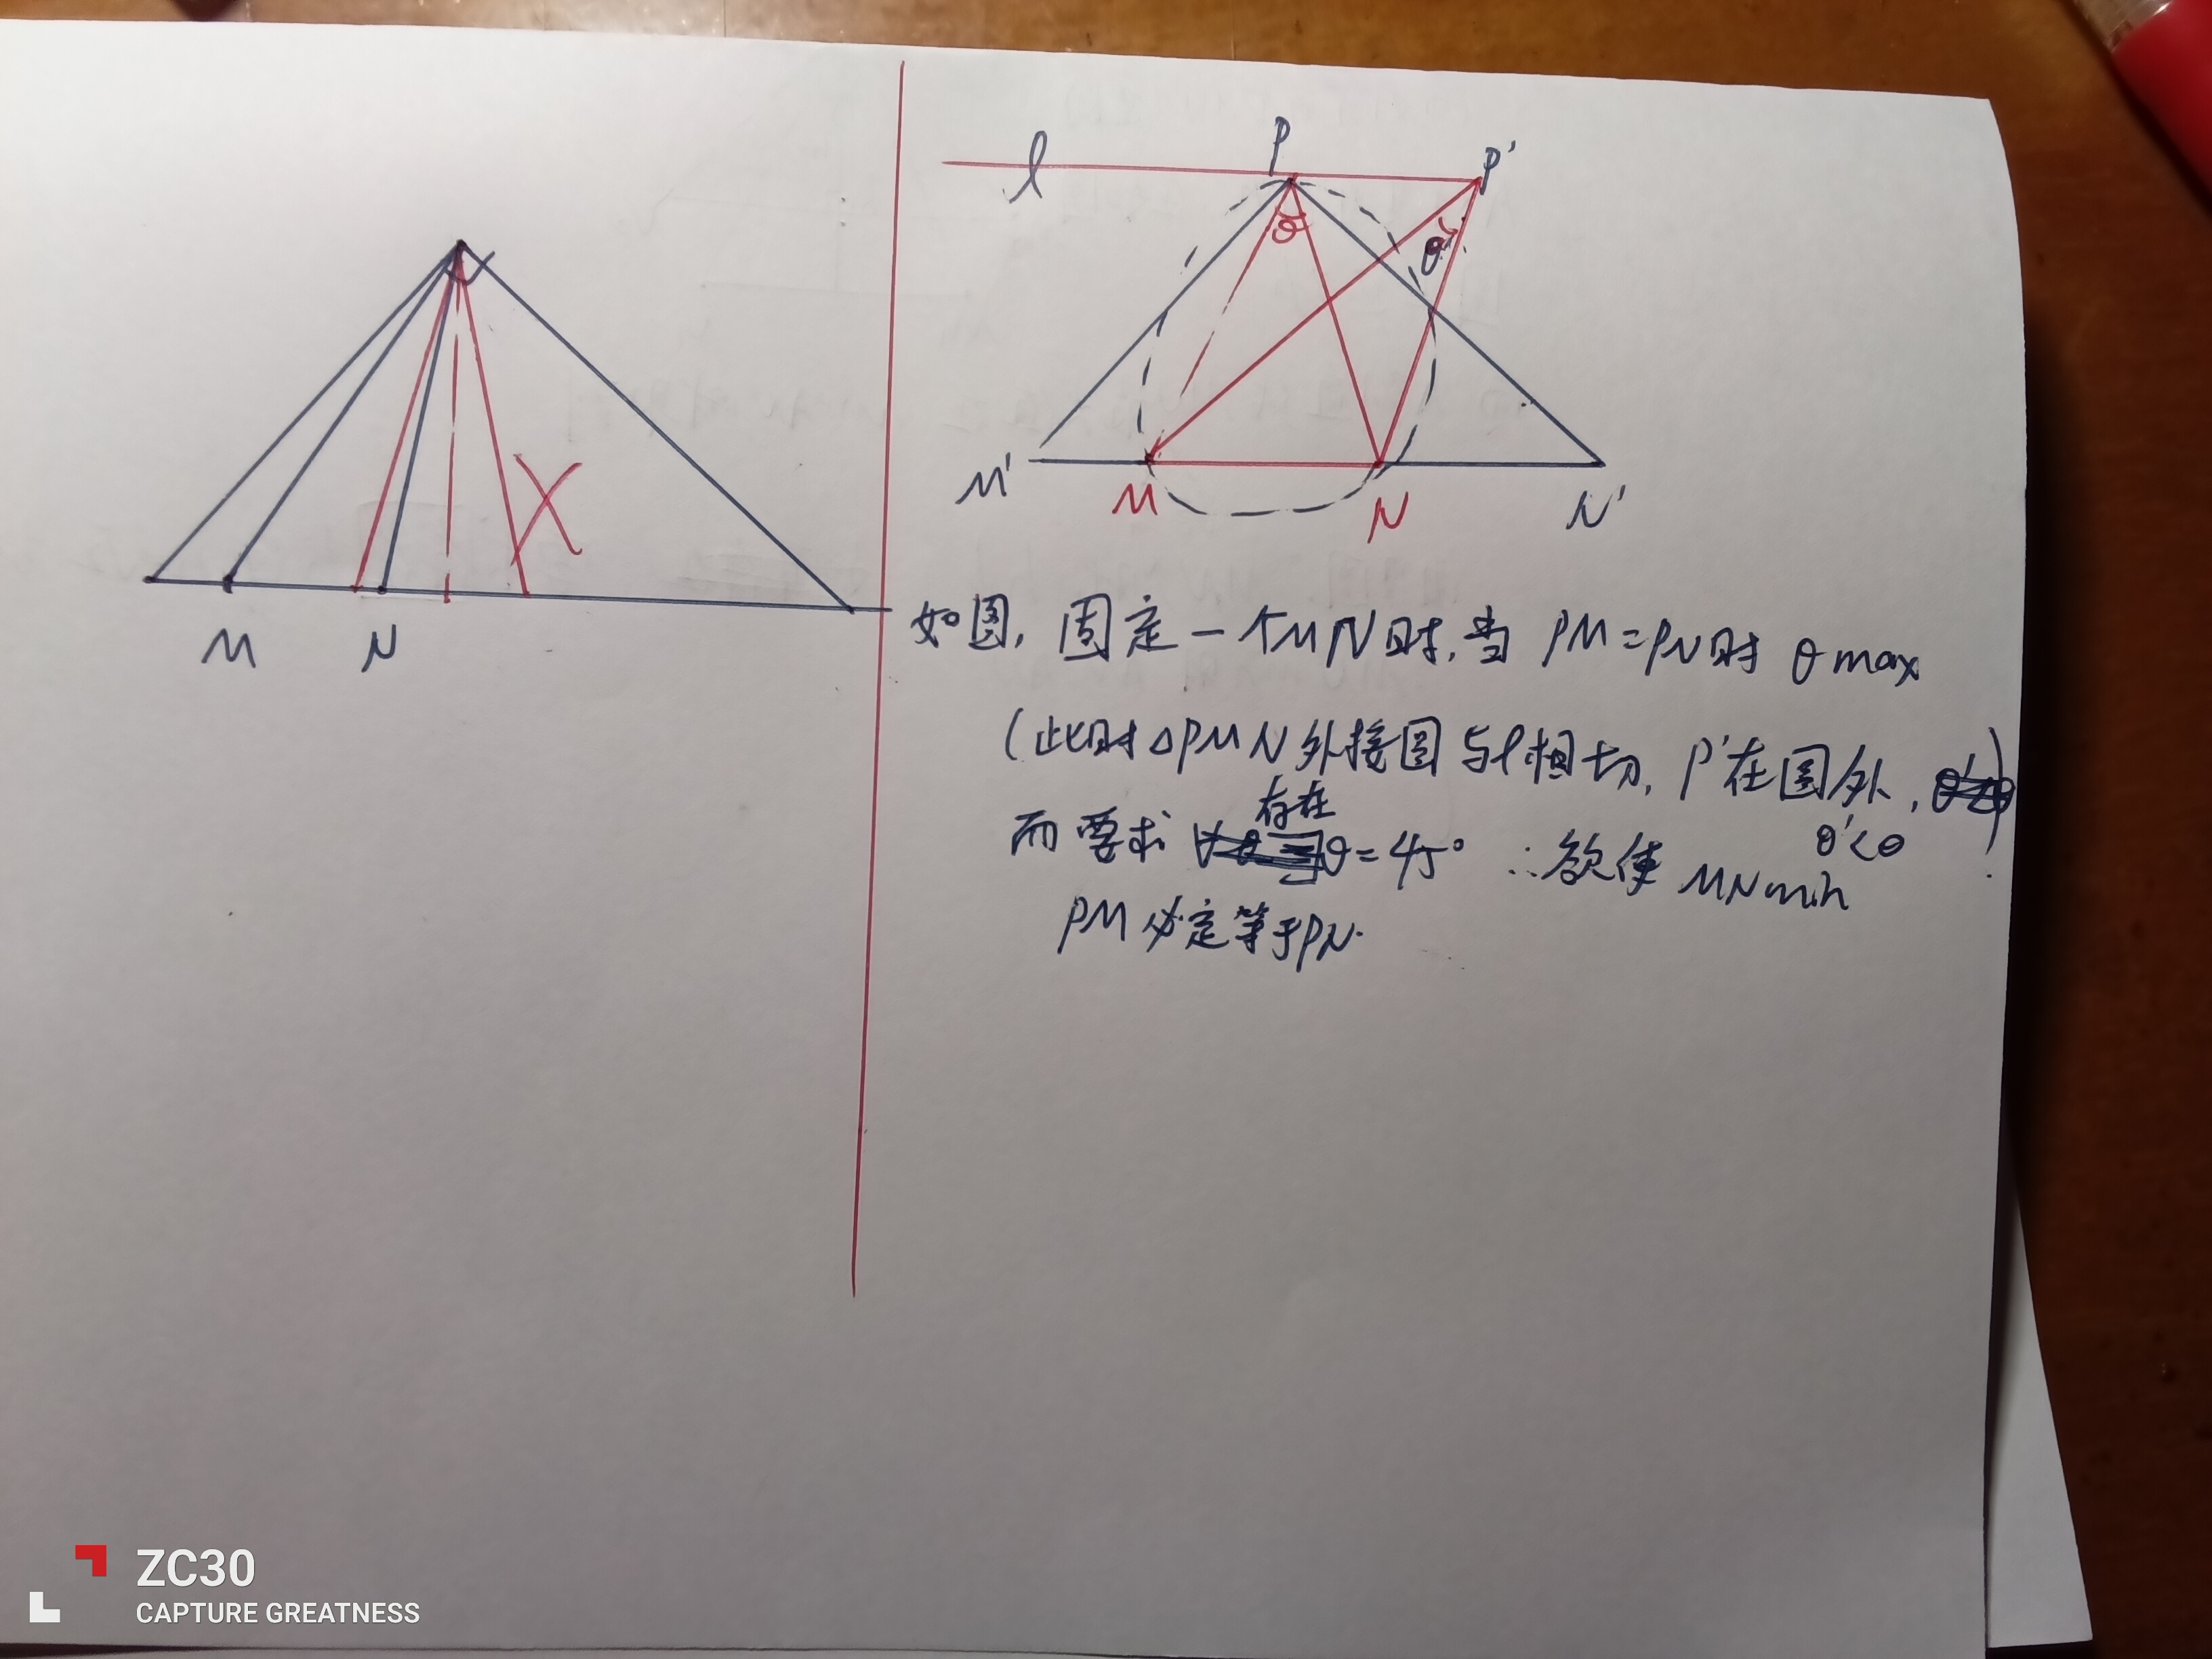 M
N
l
P
P'
θ
θ'
M'
M
N
N'
如图，固定一个MN时，当 PM=PN时 θmax
(此时△PMN外接圆与l相切，P'在圆外，θ'<θ)
而要求存在θ=45° ∴欲使 MNmin
PM必定等于PN.
ZC30
CAPTURE GREATNESS